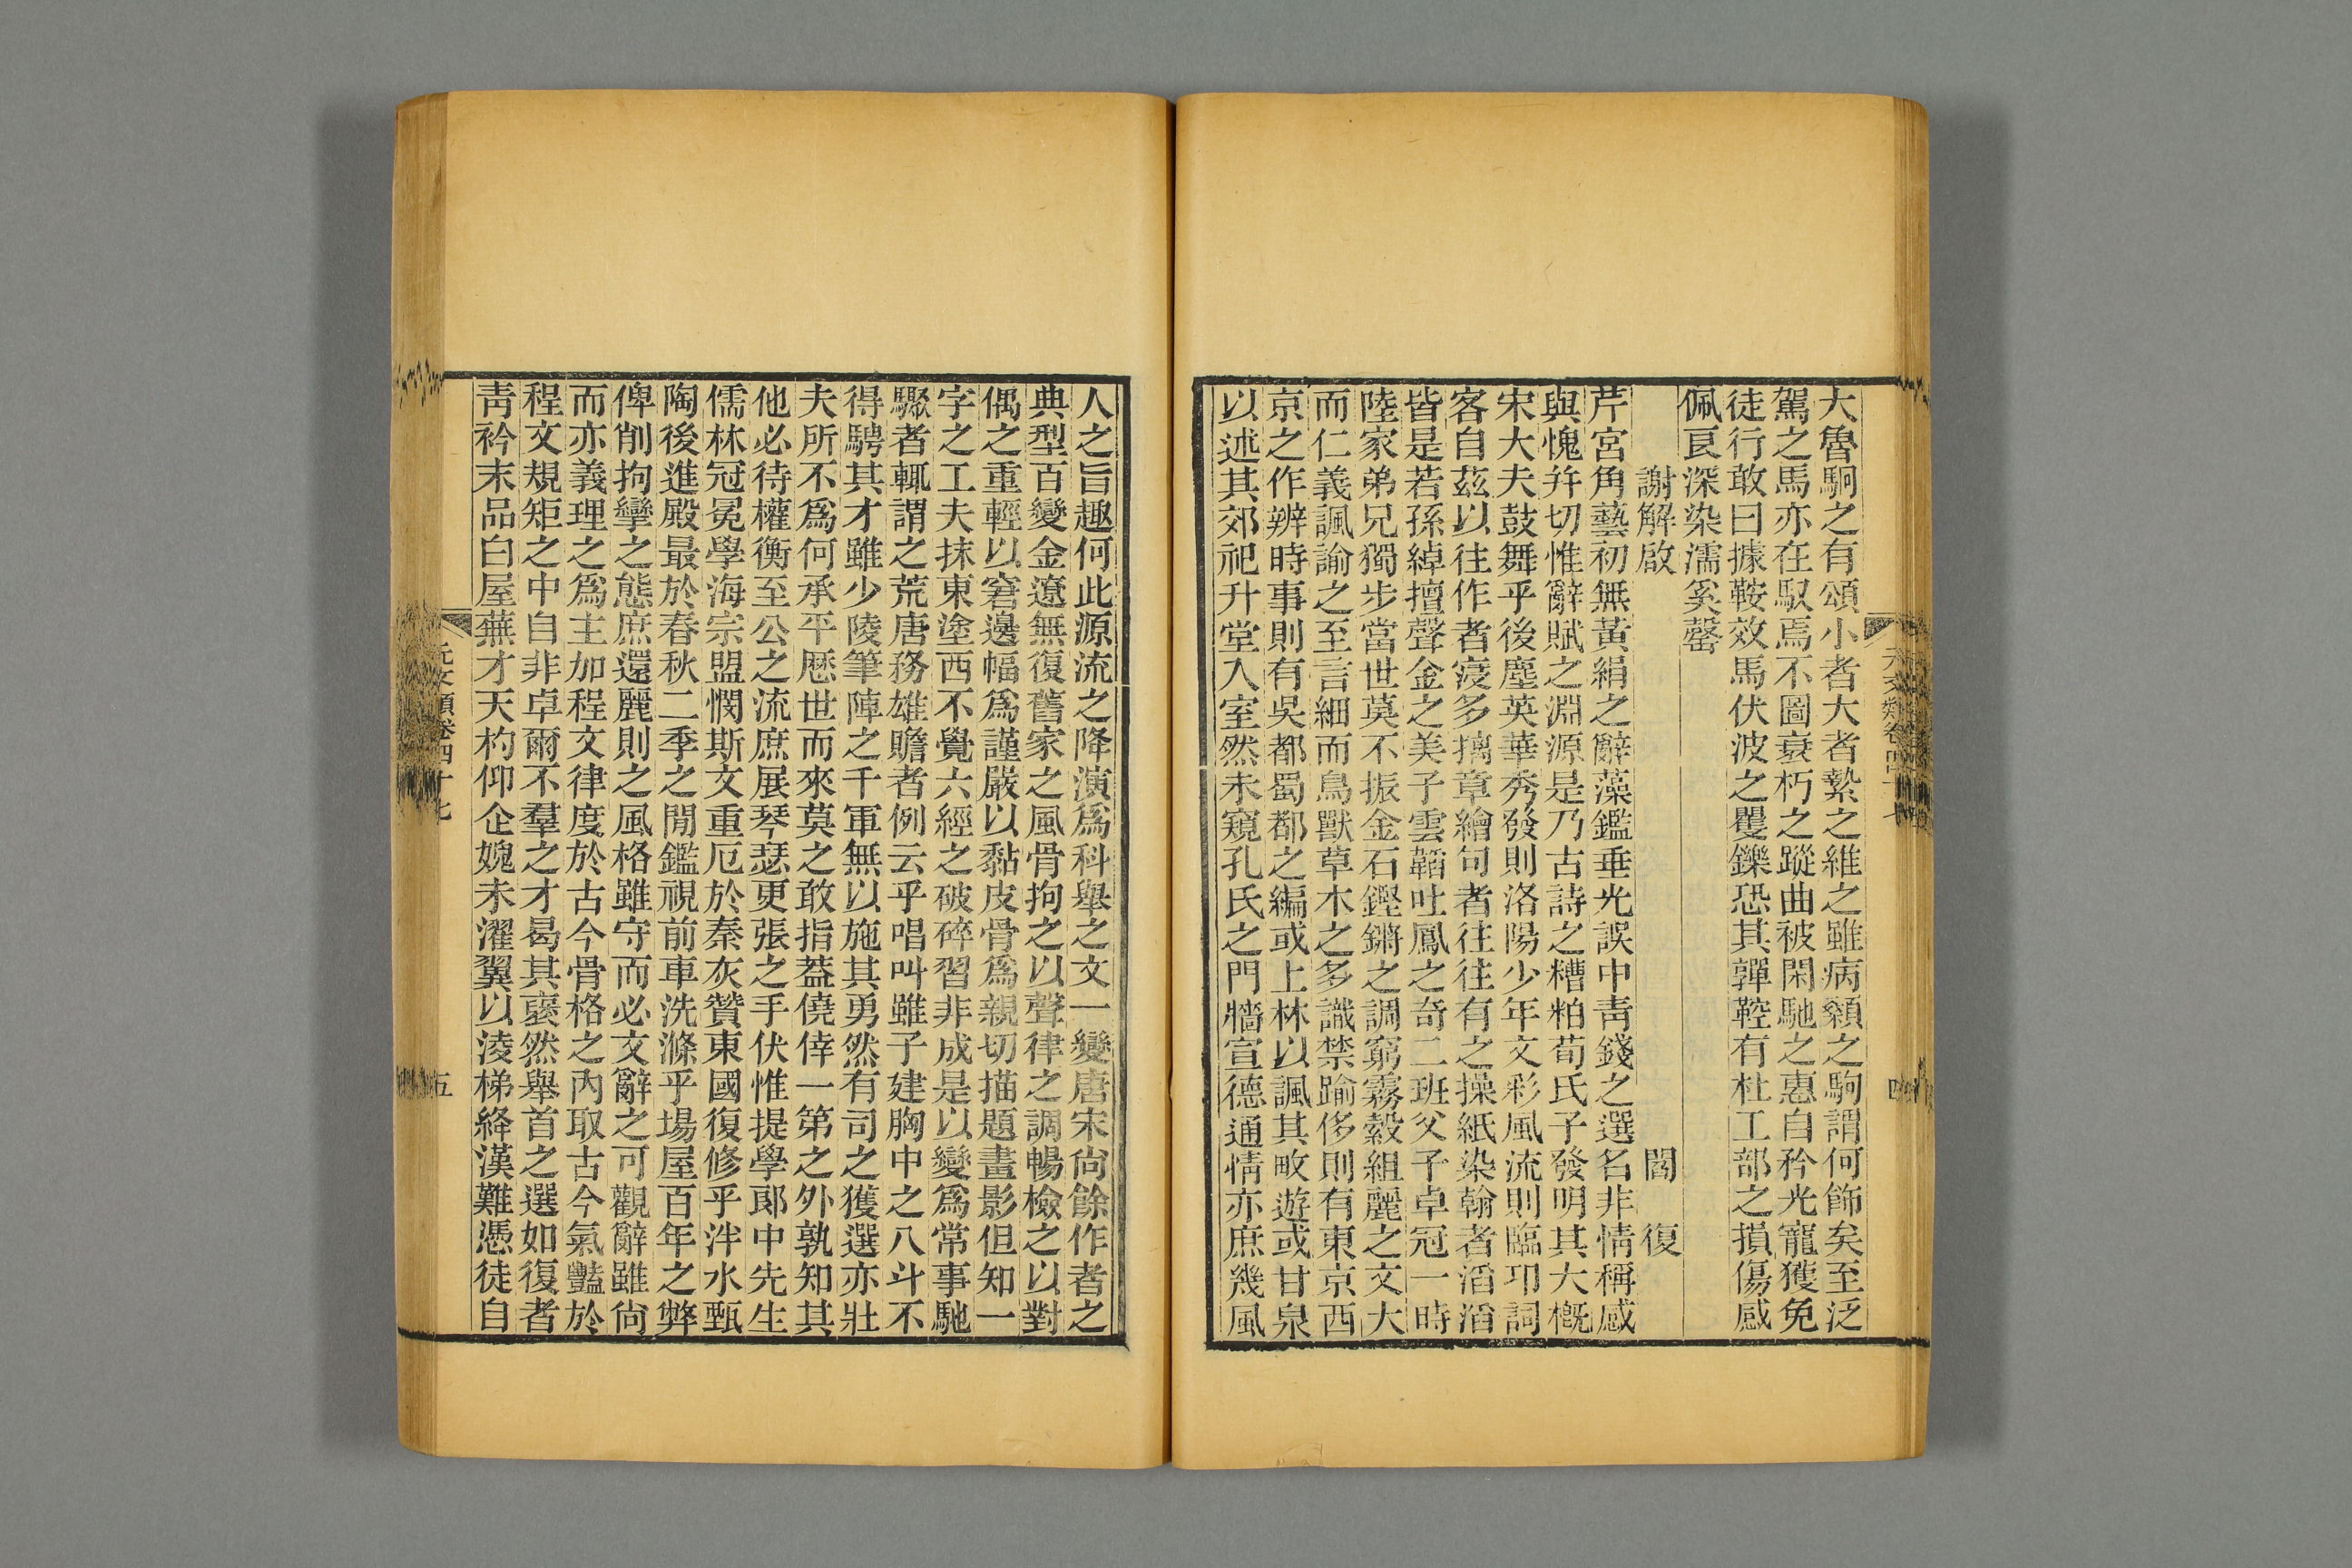 大魯駉之有頌小者大者縶之維之雖病顙之駒謂何飾矣至泛
駕之馬亦在馭焉不圖衰朽之蹤曲被閑馳之惠自矜光寵獲免
徒行敢曰據鞍效馬伏波之矍鑠恐其嚲鞚有杜工部之損傷感
佩良深染濡奚罄
謝解啟 閻復
芹宮角藝初無黃絹之辭藻鑑垂光誤中靑錢之選名非情稱感
與愧幷切惟辭賦之淵源是乃古詩之糟粕荀氏子發明其大槪
宋大夫鼓舞乎後塵英華秀發則洛陽少年文彩風流則臨邛詞
客自茲以往作者寖多摛章繪句者往往有之操紙染翰者滔滔
皆是若孫綽擅聲金之美子雲韜吐鳳之奇二班父子卓冠一時
陸家弟兄獨步當世莫不振金石鏗鏘之調窮霧縠組麗之文大
而仁義諷諭之至言細而鳥獸草木之多識禁踰侈則有東京西
京之作辨時事則有吳都蜀都之編或上林以諷其畋遊或甘泉
以述其郊祀升堂入室然未窺孔氏之門牆宣德通情亦庶幾風
人之旨趣何此源流之降演爲科舉之文一變唐宋尙餘作者之
典型百變金遼無復舊家之風骨拘之以聲律之調暢檢之以對
偶之重輕以窘邊幅爲謹嚴以黏皮骨爲親切描題畫影但知一
字之工夫抹東塗西不覺六經之破碎習非成是以變爲常事馳
驟者輒謂之荒唐務雄贍者例云乎唱叫雖子建胸中之八斗不
得騁其才雖少陵筆陣之千軍無以施其勇然有司之獲選亦壯
夫所不爲何承平歷世而來莫之敢指蓋僥倖一第之外孰知其
他必待權衡至公之流庶展琴瑟更張之手伏惟提學郎中先生
儒林冠冕學海宗盟憫斯文重厄於秦灰贊東國復修乎泮水甄
陶後進殿最於春秋二季之閒鑑視前車洗滌乎場屋百年之弊
俾削拘攣之態庶還麗則之風格雖守而必文辭之可觀辭雖尙
而亦義理之爲主加程文律度於古今骨格之內取古今氣豔於
程文規矩之中自非卓爾不羣之才曷其裦然舉首之選如復者
靑衿末品白屋蕪才天杓仰企媿未濯翼以淩梯絳漢難憑徒自